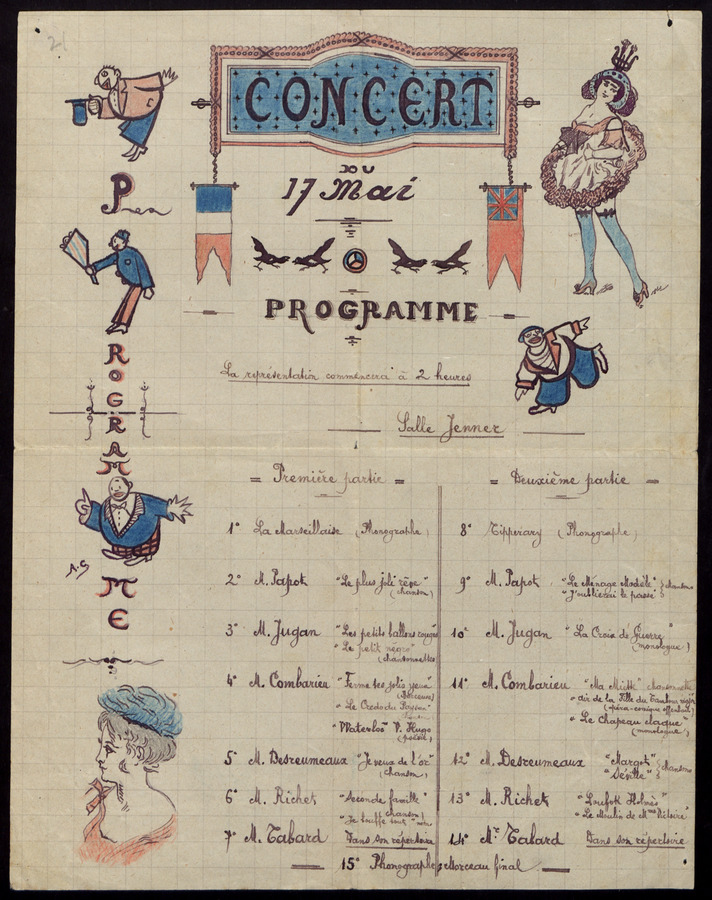 21
CONCERT
DU
17 Mai
PROGRAMME
PROGRAMME
La représentation commencera à 2 heures
Salle Jenner
A.S
= Première partie =
1° La Marseillaise (Phonographe)
2° M. Papot "Le plus joli rêve"
(chanson)
3° M. Jugan "Les petits ballons rouges"
"Le petit negro"
(chansonnettes)
4° M. Combarieu "Ferme tes jolis yeux"
(Berceuse)
"Le Credo du Paysan"
"Waterloo" V. Hugo
(poésie)
5° M. Desreumeaux "Je veux de l'or"
(chanson)
6° M. Richet "Seconde famille"
chanson
"Je truffe tout"
7° M. Tabard Dans son répertoire
= Deuxième partie =
8° Tipperary (Phonographe)
9° M. Papot "Le Ménage Modèle" } chansons
"J'oublierai le passé" }
10° M. Jugan "La Croix de Guerre"
(monologue)
11° M. Combarieu "Ma Miette" chansonnette
air de la Fille du Tambour major
(opéra-comique offenbach)
"Le Chapeau claque"
(monologue)
12° M. Desreumeaux "Margot" } chansons
"Séville" }
13° M. Richet "Loufok Holmès"
"Le Moulin de Mme Victoire"
14° Mr Tabard Dans son répertoire
15° Phonographe, Morceau final